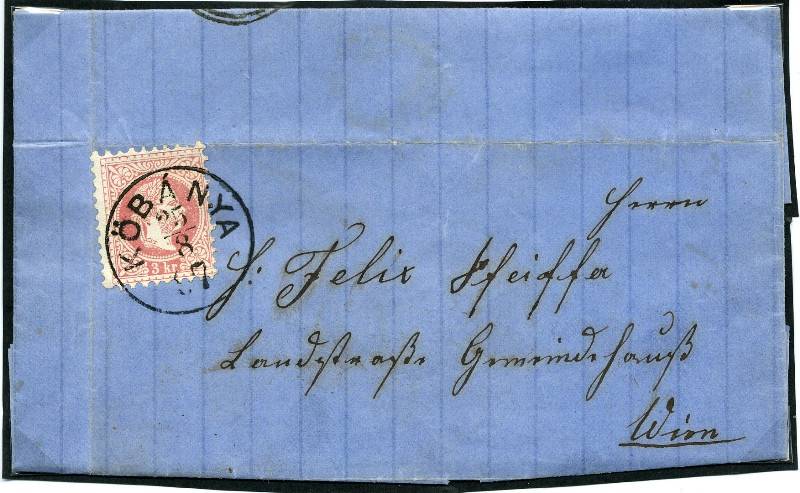 KŐBÁNYA
25
8
67
3 kr
Herrn
H: Felix Pfeiffer
Landstraße Gemeindehauß
Wien